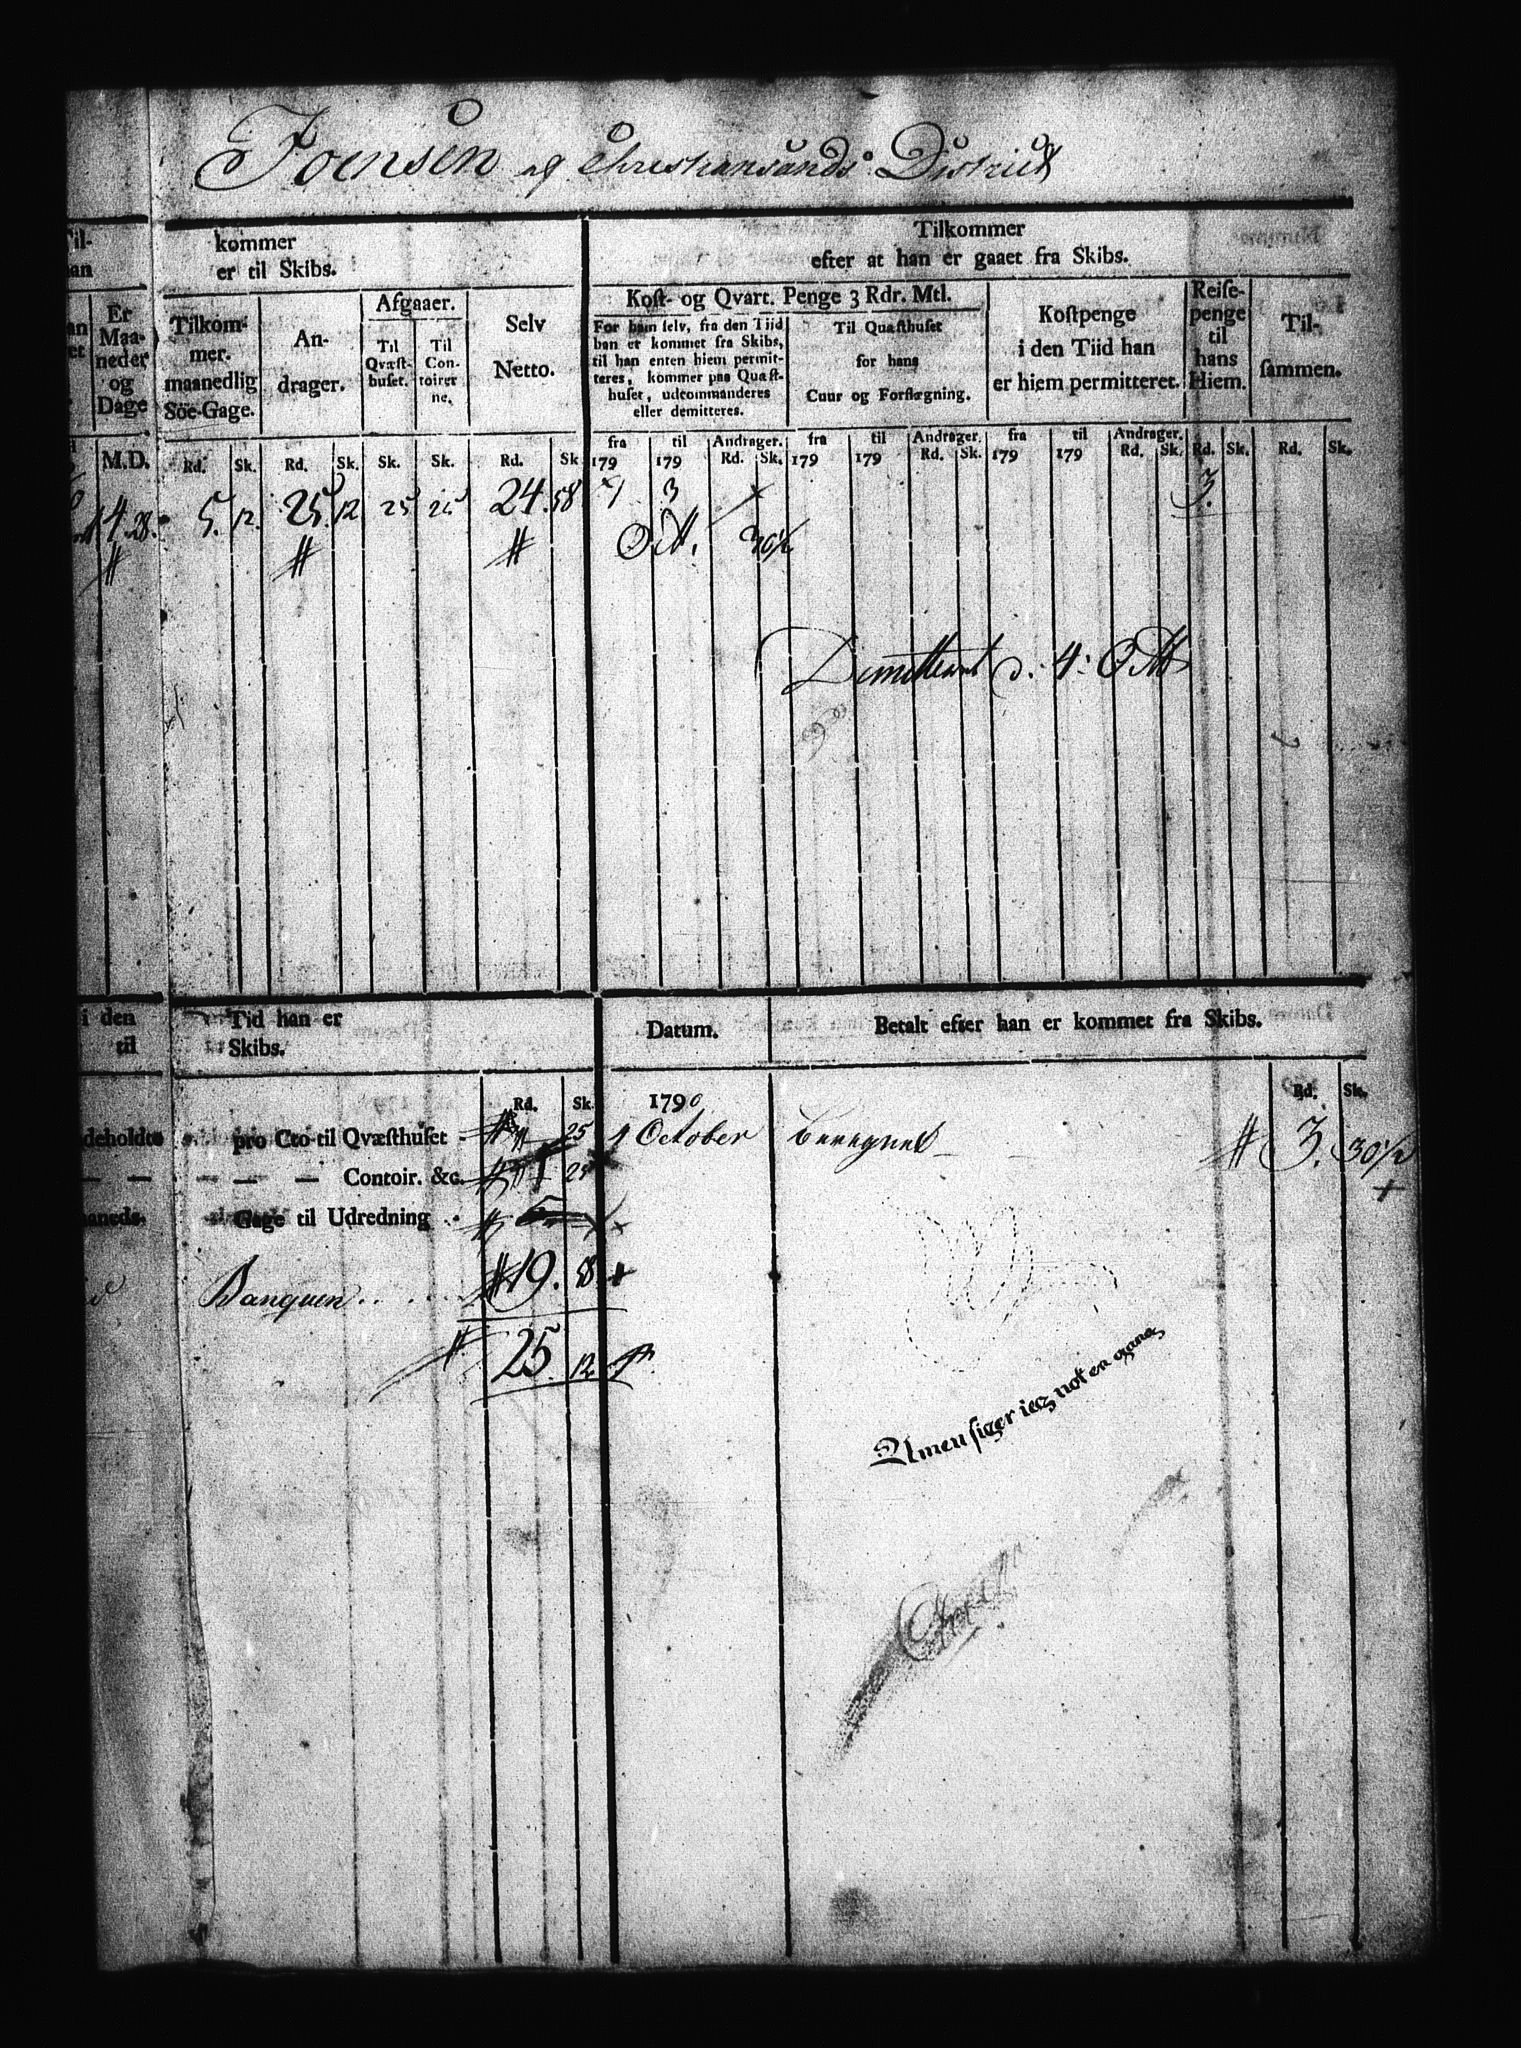 Joensen af Christiansands District
Til-
kommer
er til Skibs.
Tilkommer
efter at han er gaaet fra Skibs.
Er
Maa-
neder
og
Dage
Tilkom-
mer.
maanedlig
Söe-Gage.
An-
drager.
Afgaaer.
Til
Qvæst-
huset.
Til
Con-
toirer
ne.
Selv
Netto.
Kost- og Qvart. Penge 3 Rdr. Mtl.
For ham selv, fra den Tiid
han er kommet fra Skibs,
til han enten hiem permit-
teres, kommer paa Quæst-
huset, udcommanderes
eller demitteres.
Til Quæsthuset
for hans
Cuur og Forflægning.
Kostpenge
i den Tiid han
er hiem permitteret.
Reise-
penge
til
hans
Hiem.
Til-
sammen.
M.D. Rd. Sk. Rd. Sk. Sk. Sk. Rd. Sk.
fra til Andrager. fra til Andrager. fra til Andrager.
179 179 Rd. Sk. 179 179 Rd. Sk. 179 179 Rd. Sk. Rd. Sk. Rd. Sk.
4.28. 5. 12. 25. 12 25 25 24.58 1 3 3.
Oct. 30½
Demitteret d. 4. Oct.
i den
til
Tid han er
Skibs.
Datum.
Betalt efter han er kommet fra Skibs.
Rd. Sk. 1790 Rd. Sk.
deholdte pro Cto til Qvæsthuset 25 October beregnet 3. 30½
Contoir. &c. 25
maaneds. Gage til Udredning
Banquen 19. 58
25. 12
Amen siger ieg